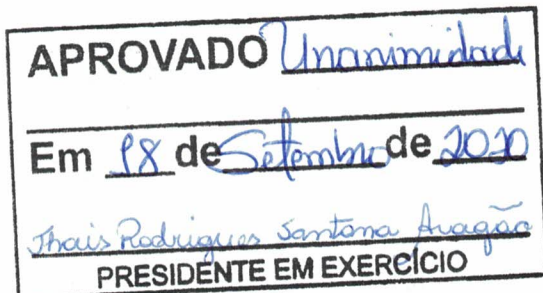 APROVADO Unanimidade
Em 18 de Setembro de 2020
Thais Rodrigues Santana Aragão
PRESIDENTE EM EXERCÍCIO